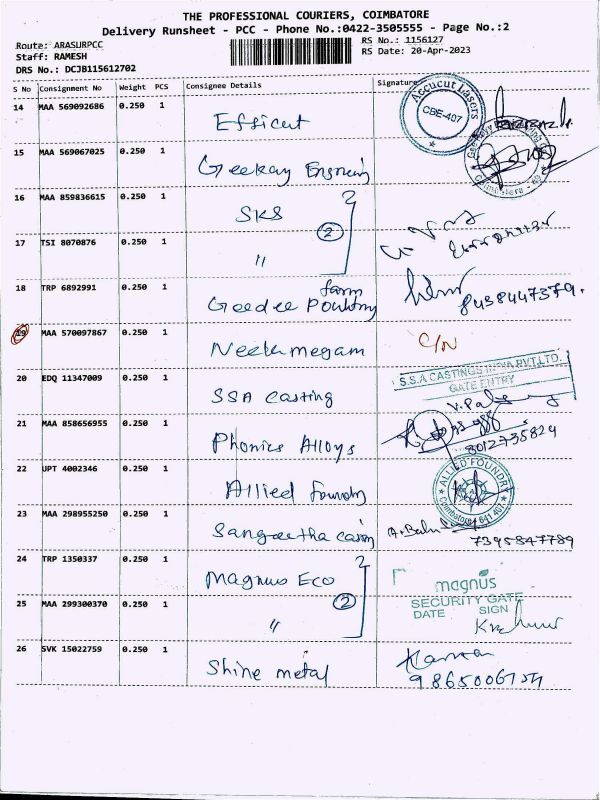 THE PROFESSIONAL COURIERS, COIMBATORE
Delivery Runsheet - PCC - Phone No.:0422-3505555 - Page No.:2
Route: ARASURPCC
RS No.: 1156127
Staff: RAMESH
RS Date: 20-Apr-2023
DRS No.: DCJB115612702
S No Consignment No Weight PCS Consignee Details Signature
14 MAA 569092686 0.250 1 Efficut
Accucut Lasers
CBE-407
15 MAA 569067025 0.250 1 Geekay
16 MAA 859836615 0.250 1 SKS
2
17 TSI 8070876 0.250 1 "
18 TRP 6892991 0.250 1 Geedee Poultry farm
8438447379.
19 MAA 570097867 0.250 1 Neelamegam C/N
20 EDQ 11347009 0.250 1 SSA casting
S.S.A CASTINGS INDIA PVT.LTD.
GATE ENTRY
21 MAA 858656955 0.250 1 Phonics Alloys
8012735824
22 UPT 4002346 0.250 1 Allied foundry
ALLIED FOUNDRY
Coimbatore 641 407
23 MAA 298955250 0.250 1 Sangeetha
7395847789
24 TRP 1350337 0.250 1 Magnus Eco
2
magnus
SECURITY GATE
DATE SIGN
25 MAA 299300370 0.250 1 "
26 SVK 15022759 0.250 1 Shine metal